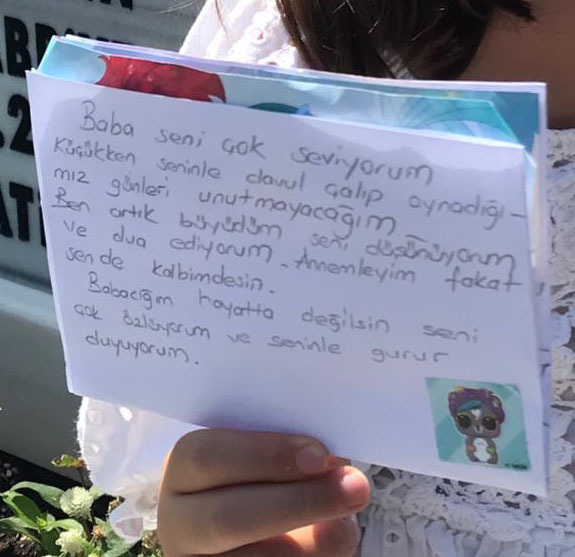 Baba seni çok seviyorum
Küçükken seninle davul çalıp oynadığı-
mız günleri unutmayacağım.
Ben artık büyüdüm seni düşünüyorum
ve dua ediyorum. Annemleyim fakat
sen de kalbimdesin.
Babacığım hayatta değilsin seni
çok özlüyorum ve seninle gurur
duyuyorum.